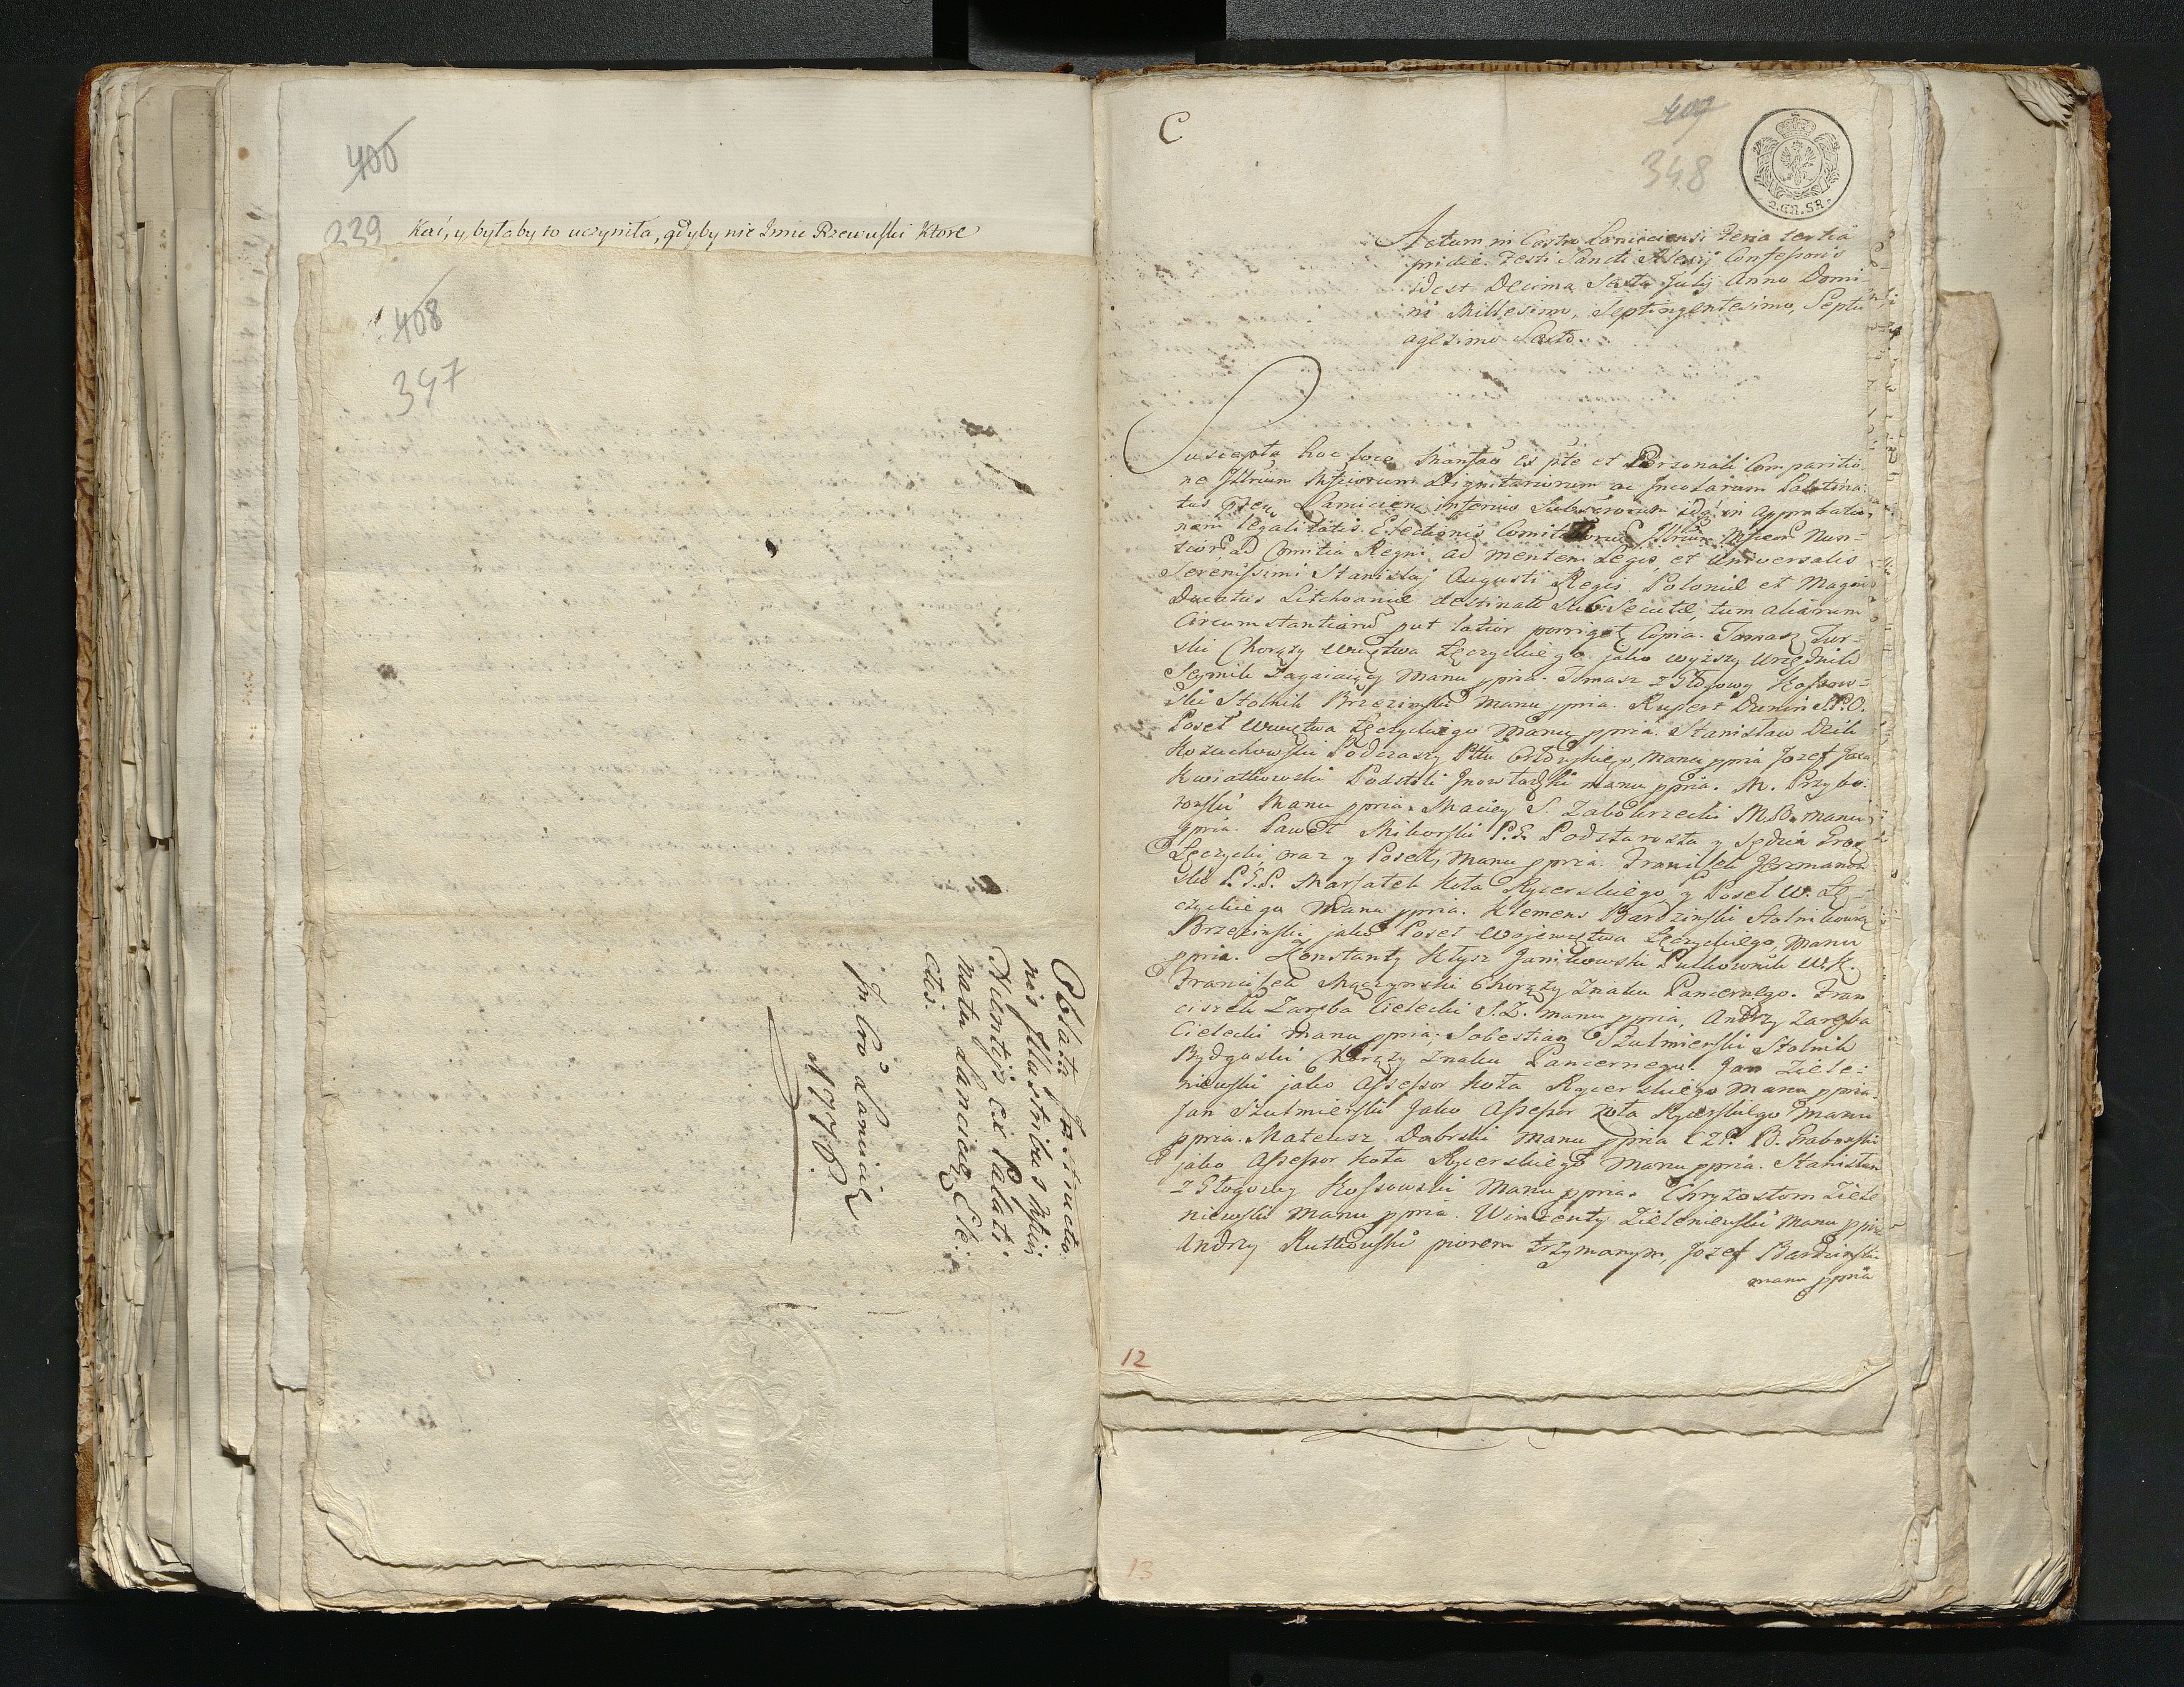 400
239
Kać, y byłaby to uczyniła, gdyby nie Imie Rzewuski ktore
408
347
Oblata Instructio
nis Illustribus Mficis
Nuntijs ex Palati:
natu Lancicien Ele:
ctis.
In Cro Lancicien
1776.
C
409
348
2.GR.SR.
Actum in Castro Lanciciensi Feria tertia
pridie Festi Sancti Alexij Confessoris
idest Decima Sexta Julij Anno Domi
ni Millesimo, Septingentesimo, Septu
agesimo Sexto.
Suscepta hoc loco Manfao ex pte et Personali Comparitio
ne Illrium Mficorum Dignitariorum ac Incolarum Palatina
tus Lancicien inferius approbatio
nem legalitatis Electionis Illrium Mficor Nun=
tior ad Comitia Regni ad mentem Legis, et Universalis
Serenissimi Stanislaj Augusti Regis Poloniæ et Magni
Ducatus Lithvaniæ destinati Subsecutæ, tum aliarum
Circumstantiarū put latior porriget Copia. Tomasz Tur=
ski Chorąży Wdztwa Łęczyckiego jako wyższy Urzędnik
Seymik Zagaiaiący Manu ppria. Tomasz z Głogowy Kossow=
ski Stolnik Brzezinski Manu ppria. Rupert Dunin S.P.O.
Poseł Wdztwa Łęczyckiego Manu ppria. Stanisław Dzik
Kożuchowski Podczaszy Pttu Orłowskiego, Manu ppria Jozef Jaxa
Kwiatkowski Podstoli Inowłodzki manu ppria. M. Przybo.
rowski Manu ppria. Maciey S. Zabokrzecki M.B. manu
ppria. Paweł Mikorski P.G. Podstarosta y Sędzia Grodz
Łęczycki, oraz y Poseł, Manu ppria. Franciszek Jerzmanow
ski P.G.L. Marszałek Koła Rycerskiego y Poseł W. Łę=
czyckiego Manu ppria. Klemens Bardzinski Stolnikowicz
Brzezinski jako Poseł Wojewdztwa Łęczyckiego, Manu
ppria. Konstanty Kłysz Janikowski Pułkownik W.K.
Franciszek Mączynski Chorąży Znaku Pancernego. Fran
ciszek Zaręba Cielecki S.Z. manu ppria, Andrzy Zaręba
Cielecki manu ppria, Sobestian Szulmierski Stolnik
Bydgoski Chorąży Znaku Pancernego. Jan Ziele=
niewski jako Assessor Koła Rycerskiego Manu ppria.
Jan Szulmierski Jako Assessor Koła Rycerskiego Manu
ppria. Mateusz Dabrski Manu ppria C.Z.P. B. Grabowski
jako Assessor Koła Rycerskiego Manu ppria. Stanisław
z Głogowy Kossowski Manu ppria. Chryzostom Ziele
niewski Manu ppria. Wincenty Zieleniewski Manu ppria
Andrzy Rutkowski piorem trzymanym, Jozef Bardzinski
manu ppria
12
13